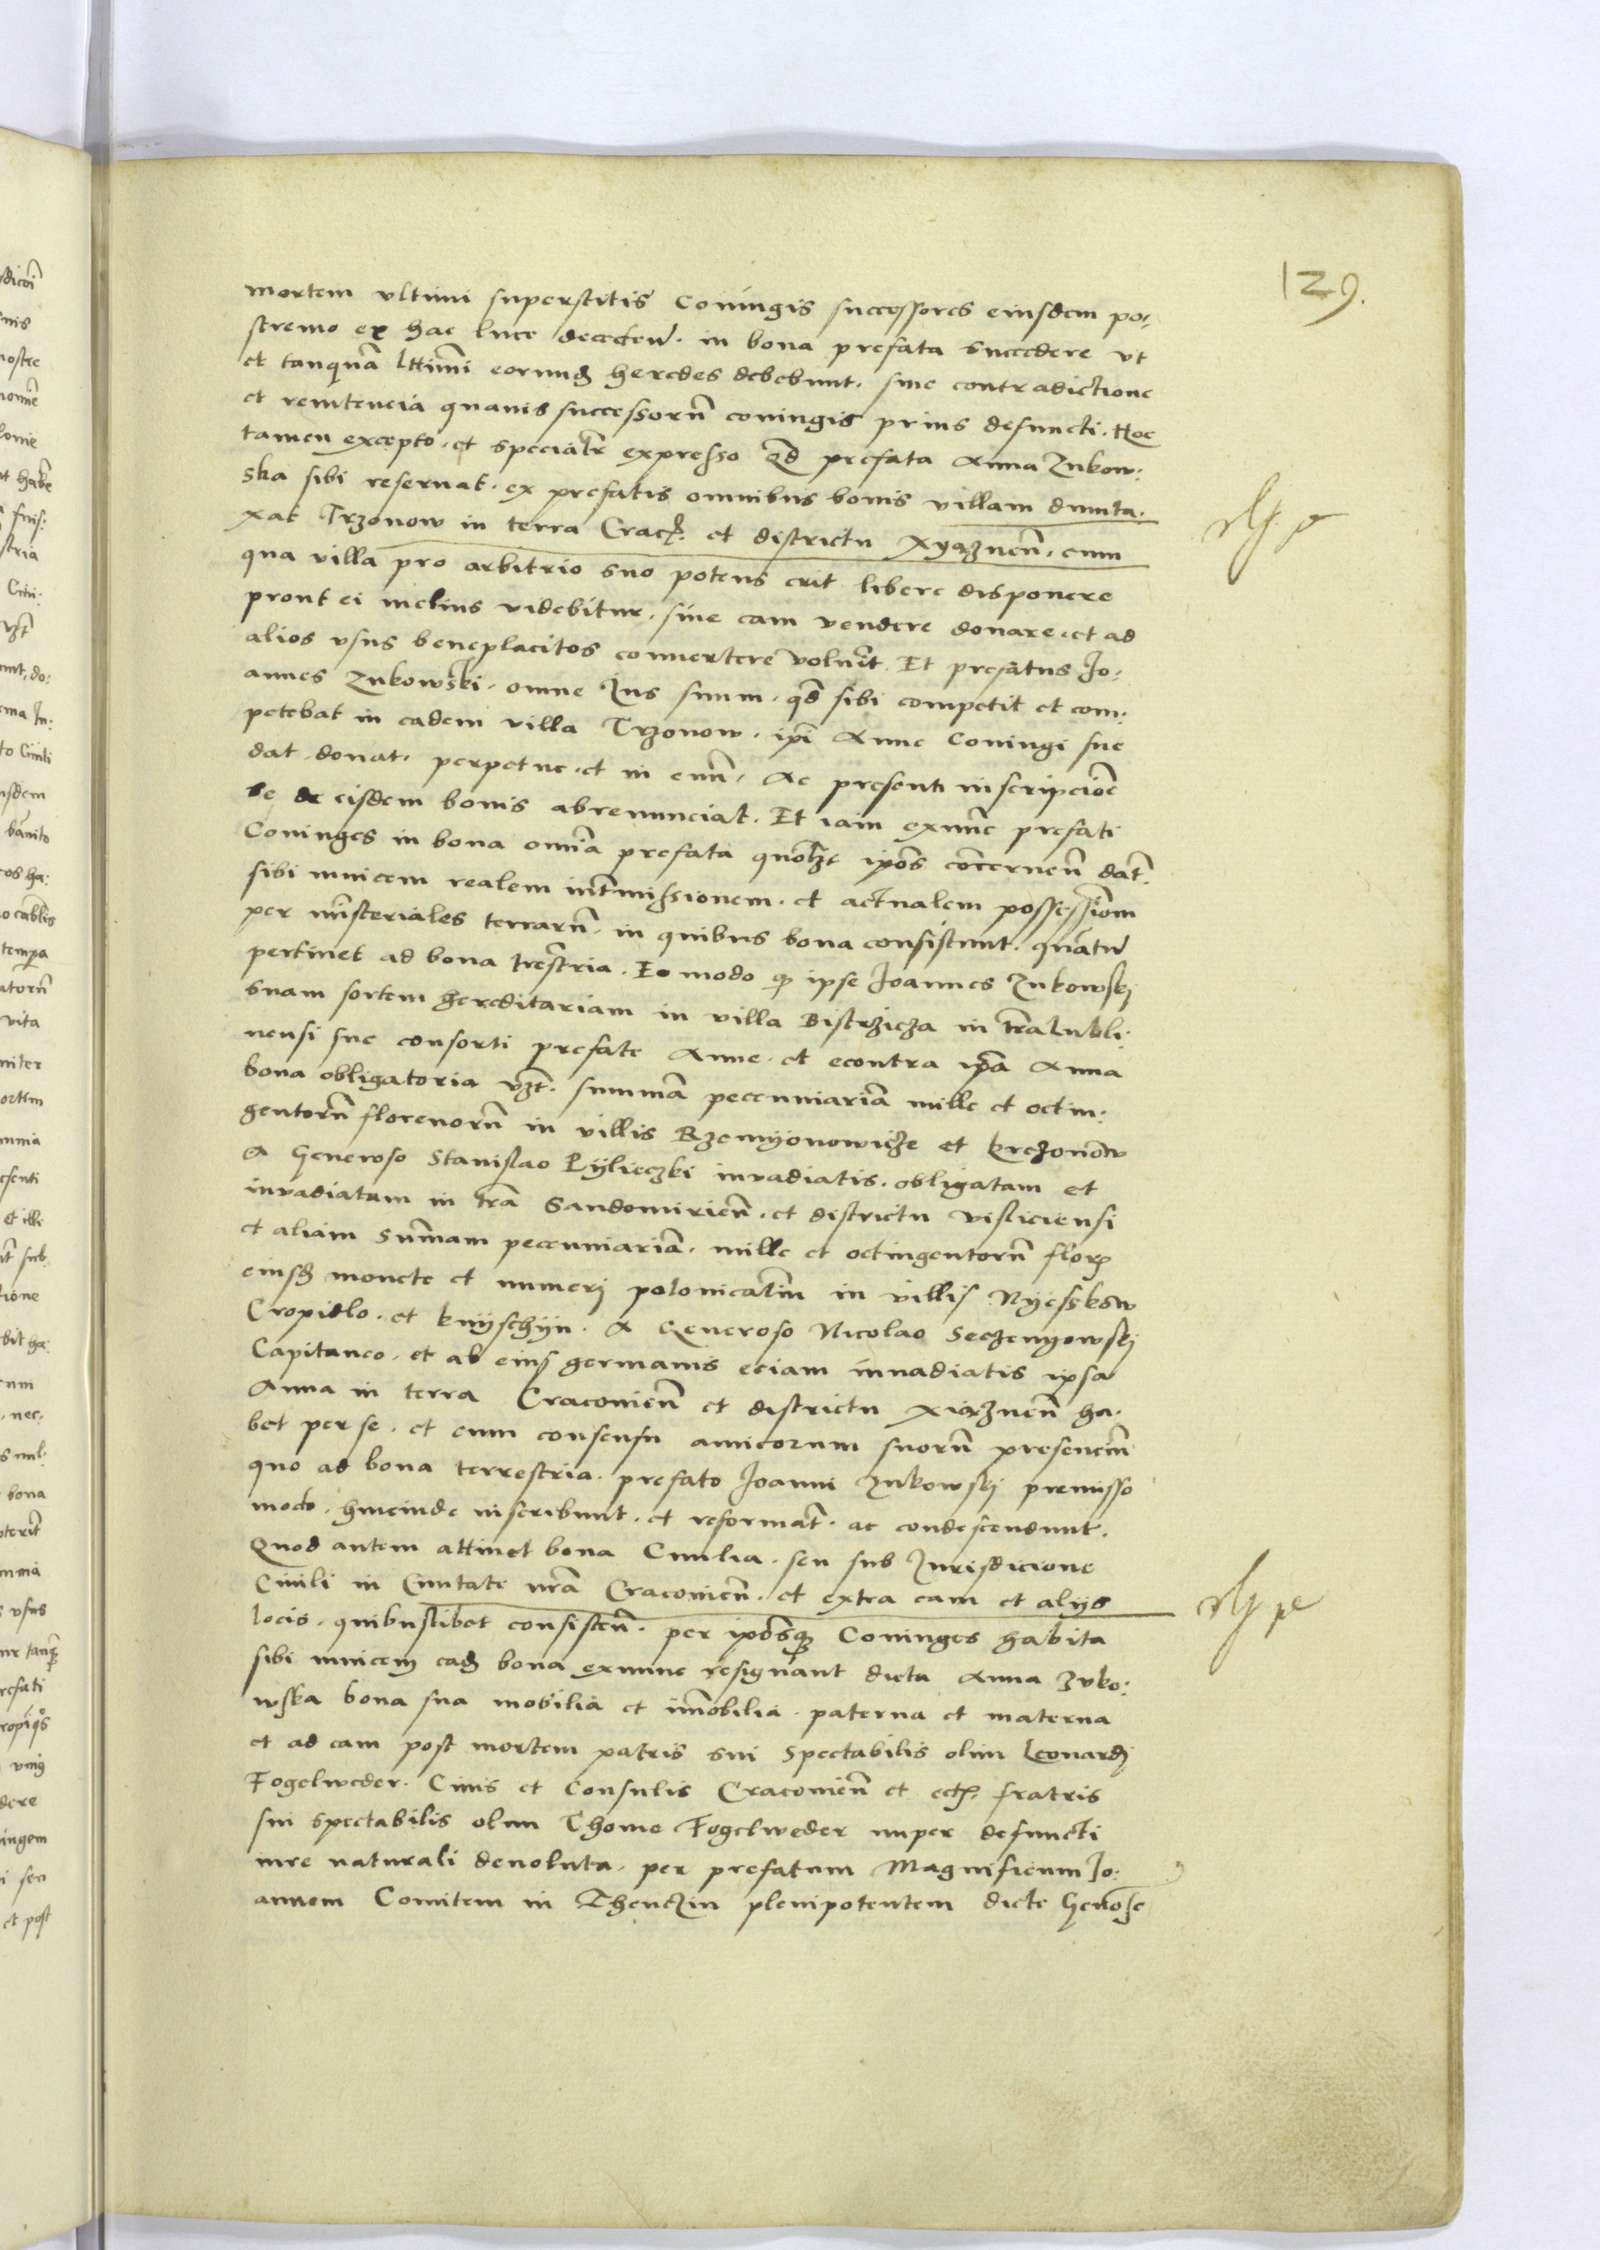 129.
mortem vltimi superstitis Coniugis successores eiusdem po-
stremo ex hac luce decedeñ. in bona prefata succedere vt
et tanquã lttimi eorund heredes debebunt. sine contradictione
et renitencia quauis successorũ coniugis prius defuncti. Hoc
tamen excepto. et specialr expresso qd prefata Anna Zukow:
ska sibi reseruat. ex prefatis omnibus bonis villam dumta.
xat Trzonow in terra Crac. et districtu Xyaznen̄. cum
qua villa pro arbitrio suo potens erit libere disponere
prout ei melius videbitur. siue eam vendere donare. et ad
alios vsus beneplacitos conuertere voluerit. Et prefatus Jo:
annes Zukowski. omne Jus suum. qd sibi competit et com:
petebat in eadem villa Trzonow. ipi Anne Coniugi sue
dat. donat. perpetue. et in euũ. Ac presenti inscripcioe
se de eisdem bonis abrenunciat. Et iam exnunc prefati
Coniuges in bona omnia prefata ipos concerneñ dãt.
sibi inuicem realem intmissionem. et actualem possessiom
per ministeriales terrarũ. in quibus bona consistunt. quãtũ
pertinet ad bona trestria. Eo modo ipse Joannes Zukowskj
suam sortem hereditariam in villa Bistrzicza in tra Lubli:
nensi sue consorti prefate Anne. et econtra ipa Anna
bona obligatoria vzt. summã peccuniariã mille et octin:
gentorũ florenorũ in villis Rzemyonowicze et Krczonow
A Generoso Stanislao Pylieczki inuadiatis. obligatam et
inuadiatam in tra Sandomirieñ. et districtu visliciensi
et aliam Summam peccuniariã. mille et octingentorũ flor
eiusd monete et numeri polonicalim in villis Nyesskow
Cropidlo. et Knyschyn. A Generoso Nicolao Seczenyowskj
Capitaneo. et ab eius germanis eciam inuadiatis ipsa
Anna in terra Cracouieñ et districtu Xiazneñ ha.
bet per se. et cum consensu amicorum suorũ presencium
quo ad bona terrestria. prefato Joanni Zukowskj premisso
modo. hincinde inscribunt. et reformãt. ac condescendunt.
Quod autem attinet bona Ciuilia. seu sub Jurisdicione
Ciuili in Ciuitate nra Cracouieñ. et extra eam et alijs
locis. quibuslibet consisteñ. per iposq Coniuges habita
sibi inuicem ead bona exnunc resignant dicta Anna Zuko:
wska bona sua mobilia et imobilia. paterna et materna
et ad eam post mortem patris sui Spectabilis olim Leonardj
Fogelweder. Ciuis et Consulis Cracouieñ et fratris
sui spectabilis olim Thome Fogelweder nuper defuncti
iure naturali deuoluta. per prefatum Magnificum Jo:
annem Comitem in Thenczin plenipotentem dicte Genose